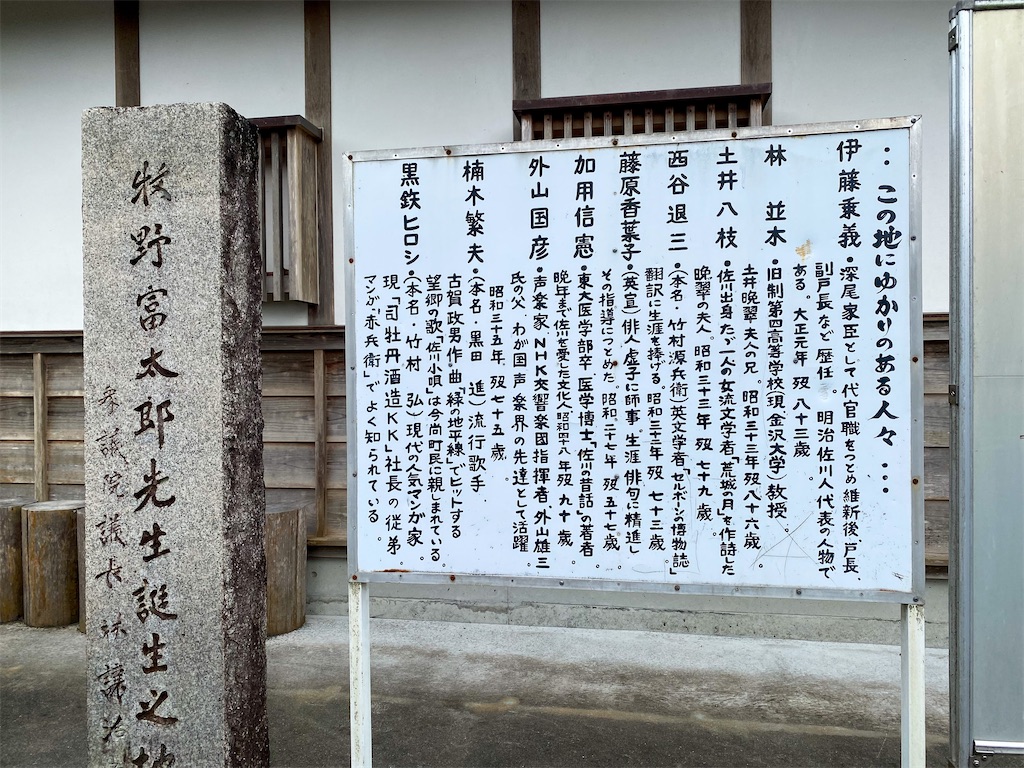 ：この地にゆかりのある人々…
伊藤乗義・深尾家臣として代官職をつとめ維新後、戸長、
副戸長など歴任。明治佐川人代表の人物で
ある。大正元年 歿 八十三歳
林 並木・旧制第四高等学校(現金沢大学)教授。
土井晩翠夫人の兄。昭和三十三年歿八十六歳
土井八枝・佐川出身ただ一人の女流文学者「荒城の月」を作詩した
晩翠の夫人。昭和二十三年 歿 七十九歳
西谷退三・(本名・竹村源兵衛)英文学者「セルボーンの博物誌」
翻訳に生涯を捧げる。昭和三十二年 歿 七十三歳
藤原香葉子・(英宣)俳人虚子に師事。生涯俳句に精進し
その指導につとめた。昭和二十七年 歿 五十七歳
加用信憲・東大医学部卒、医学博士「佐川の昔話」の著者
晩年まで佐川を愛した文化人、昭和四十八年歿 九十歳
外山国彦・声楽家、NHK交響楽団指揮者、外山雄三
氏の父、わが国声楽界の先達として活躍
昭和三十五年、歿七十五歳
楠木繁夫・(本名・黒田 進)流行歌手、
古賀政男作曲「緑の地平線」でヒットする
望郷の歌「佐川小唄」は今尚町民に親しまれている
黒鉄ヒロシ・(本名・竹村 弘)現代の人気マンガ家。
現「司牡丹酒造KK」社長の従弟
マンガ「赤兵衛」でよく知られている
牧野富太郎先生誕生之地
参議院議長 林 譲治